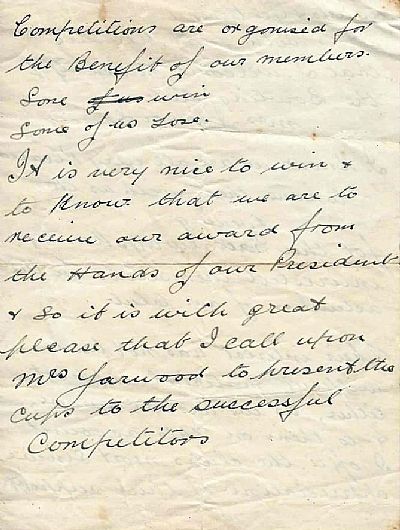 Competitions are organised for
the Benefit of our members.
Some of us win
Some of us Lose.
It is very nice to win &
to Know that we are to
receive our award from
the Hands of our President
& So it is with great
please that I call upon
Mrs Yarwood to present the
Cups to the successful
Competitors